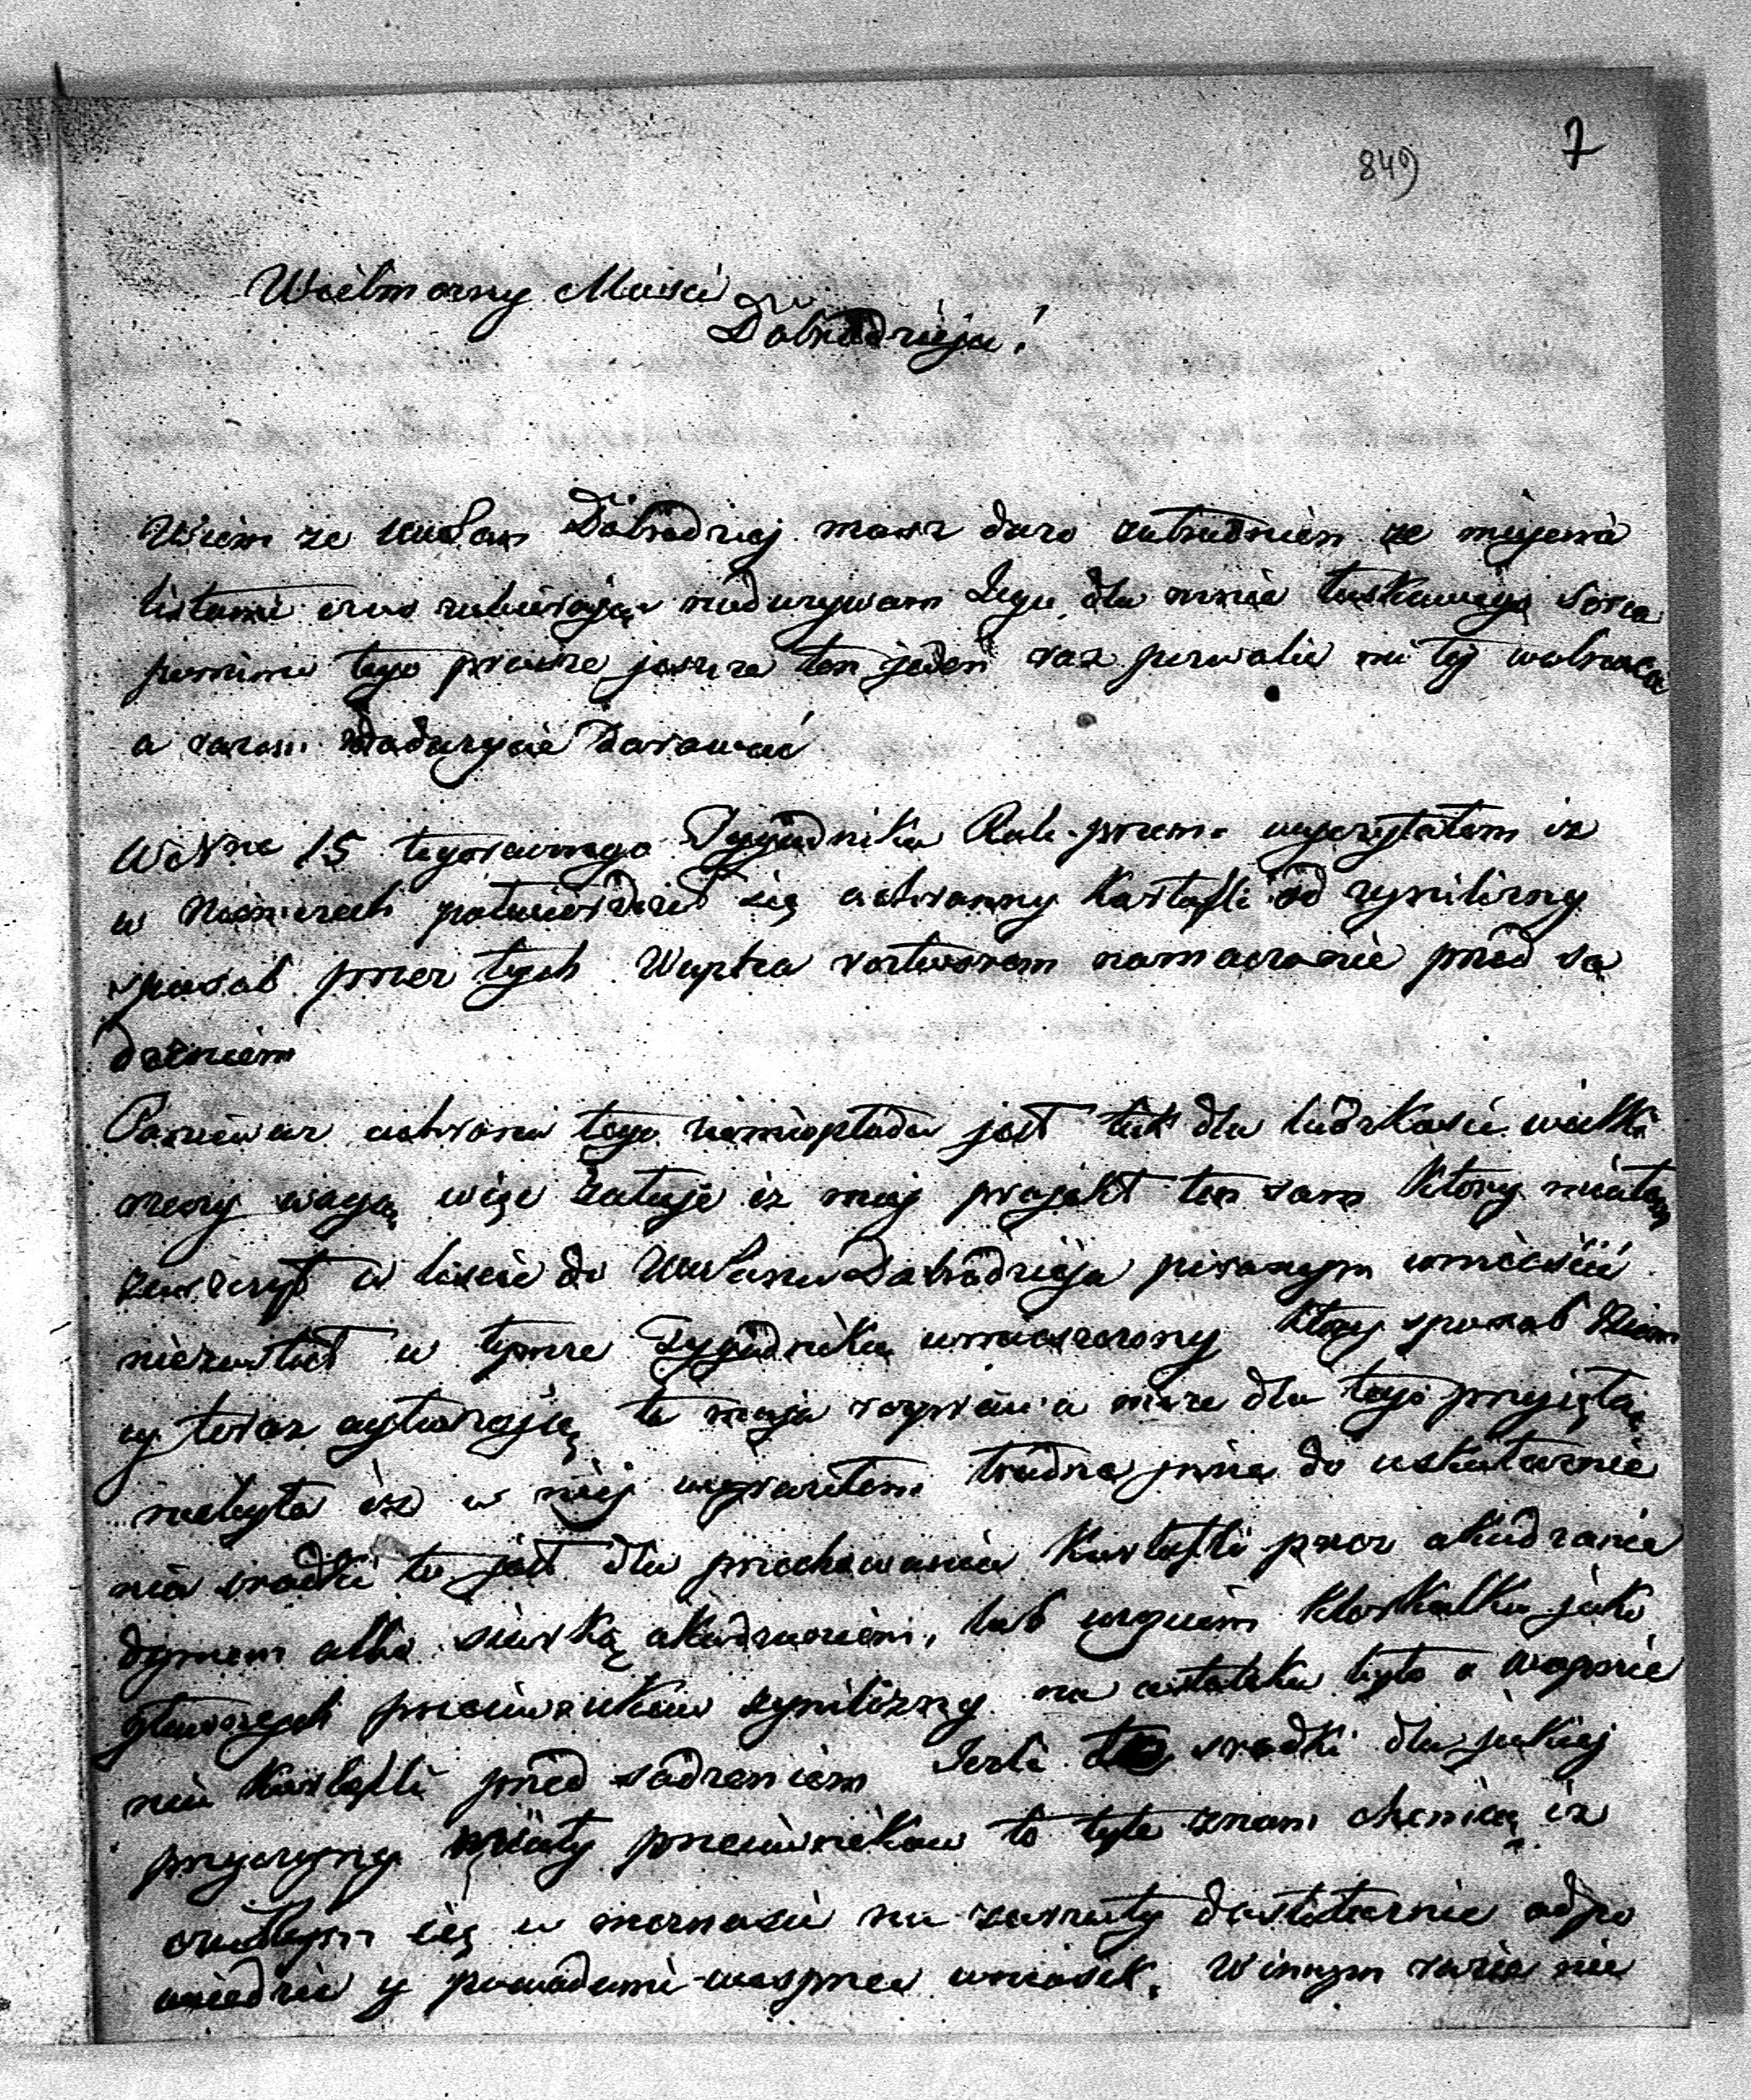 849
7
Wielmożny Mości
Dobrodzieju!
Wiem że WwPan Dobrodziej masz dużo zatrudnień ze mojemi
listami czas zabierając nadużywam Jego dla mnie łaskawego serca
pomimo tego proszę jeszcze ten jeden raz pozwolić mi tej wolności
a razem
W Nrze 15 tegorocznego Tygodnika Rol. przem. wyczytałem iż
w Niemczech potwierdził się ochronny Kartofli od zgnilizny
sposób przez tych Wapna roztworem namaczanie przed sa
dzeniem
Ponieważ ochrona tego ziemiopłodu jest tak dla ludzkości wielkiej
wagą więc żałuję iż mój projekt ten sam który miałem
zaszczyt w liście do WwPana Dobrodzieja pisanym umieścić
niezostał w tymże Tygodniku umieszczony który sposób Niem
cy teraz ta moja rozprawa może dla tego przyjętą
niebyła iż w niej wyraziłem trudne inne do uskutecznie
nia srodki to jest dla zachowania Kartofli przez okadzanie
dymem albo siarką okadzaniem, lub użyciem Chloskalku jako
głównych przeciwników zgnilizny na ostatku było o wapnie
niu Kartofli przed sadzeniem Jeśli te srodki dla jakiej
przyczyny miały przeciwników to tyle znam chemią iż
czułbym się w możności na zarzuty dostatecznie odpo
wiedzieć y powodami wesprzeć wniosek. W innym razie nie